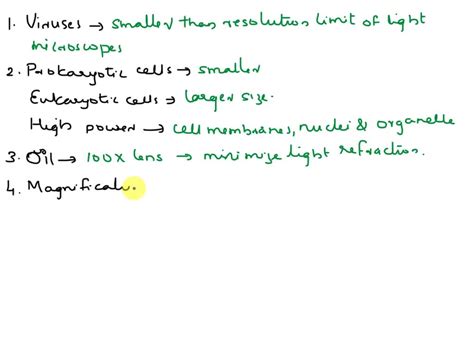 1. Viruses → smaller than resolution limit of light
microscopes
2. Prokaryotic cells → smaller
Eukaryotic cells → larger size.
High power → cell membranes, nuclei & organelle
3. Oil → 100x lens → minimize light refraction.
4. Magnificati